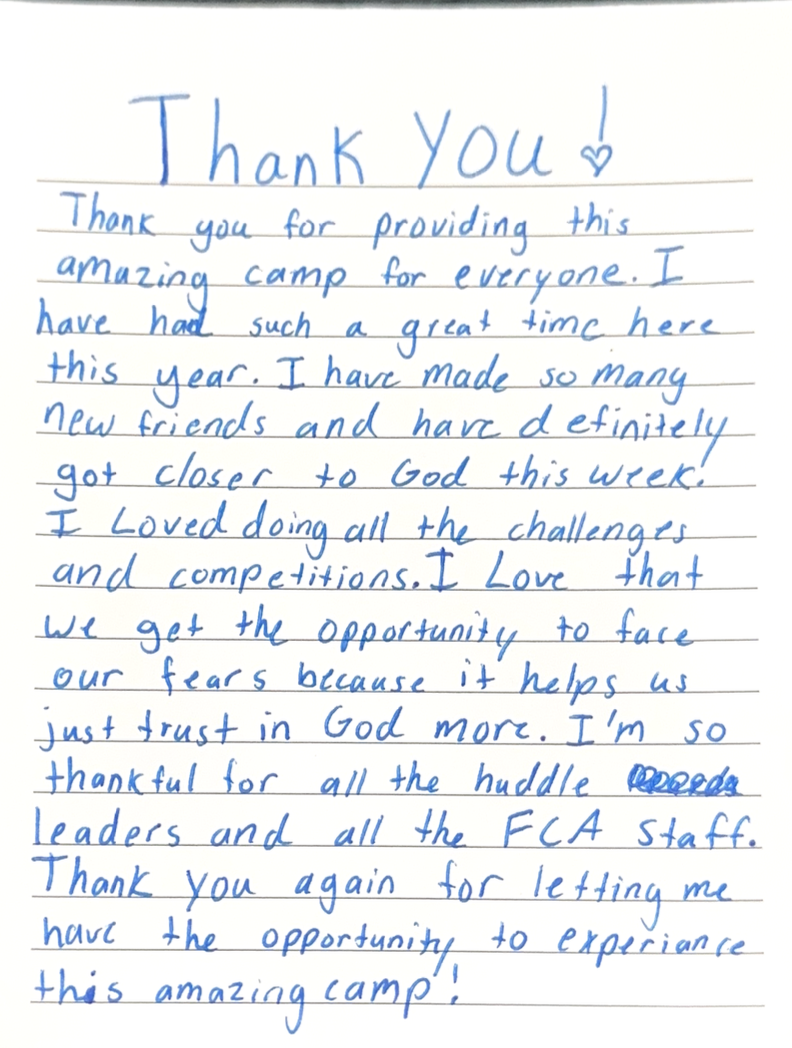 Thank you!
Thank you for providing this
amazing camp for everyone. I
have had such a great time here
this year. I have made so many
new friends and have definitely
got closer to God this week!
I Loved doing all the challenges
and competitions. I Love that
we get the opportunity to face
our fears because it helps us
just trust in God more. I'm so
thankful for all the huddle
leaders and all the FCA Staff.
Thank you again for letting me
have the opportunity to experiance
this amazing camp!